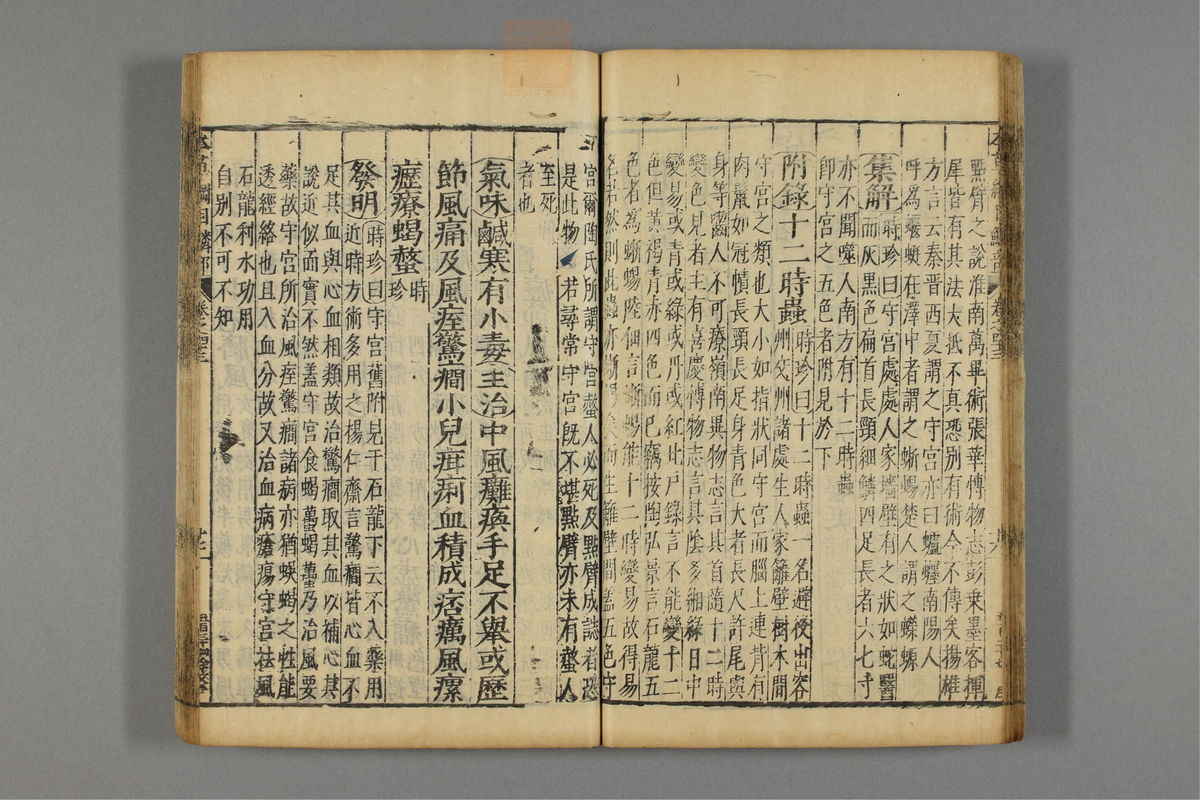 點臂之說淮南萬畢術張華博物志彭乘墨客揮
犀皆有其法大抵不真恐別有術今不傳矣揚雄
方言云秦晉西夏謂之守宮亦曰蠦𧔥南陽人
呼為蝘蜓在澤中者謂之蜥蜴楚人謂之蠑螈
集解時珍曰守宮處處人家墻壁有之狀如蛇醫
而灰黑色扁首長頸細鱗四足長者六七寸
亦不聞噬人南方有十二時蟲
即守宮之五色者附見於下
附錄十二時蟲時珍曰十二時蟲一名避役出容
州交州諸處生人家籬壁樹木間
守宮之類也大小如指狀同守宮而腦上連背有
肉鬣如冠幘長頸長足身青色大者長尺許尾與
身等嚙人不可療嶺南異物志言其首隨十二時
變色見者主有喜慶博物志言其陰多緗綠日中
變易或青或綠或丹或紅北戶錄言不能變十二
色但黃褐青赤四色而已竊按陶弘景言石龍五
色者為蜥蜴陸佃言蜥蜴能十二時變易故得易
名若然則此蟲亦蜥蜴矣而生籬壁間蓋五色守
宮爾陶氏所謂守宮螫人必死及點臂成誌者恐
是此物若尋常守宮既不堪點臂亦未有螫人
至死
者也
氣味鹹寒有小毒主治中風癱瘓手足不舉或歷
節風痛及風痓驚癇小兒疳痢血積成痞癘風瘰
癧療蝎螫時珍
發明時珍曰守宮舊附見于石龍下云不入藥用
近時方術多用之楊仁齋言驚癇皆心血不
足其血與心血相類故治驚癇取其血以補心其
說近似而實不然蓋守宮食蝎蠆蝎蠆乃治風要
藥故守宮所治風痓驚癇諸病亦猶蜈蝎之性能
透經絡也且入血分故又治血病瘡瘍守宮祛風
石龍利水功用
自別不可不知
本草綱目鱗部
卷之四十三